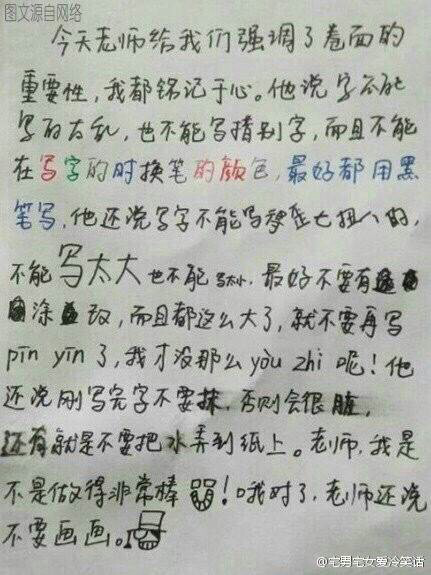 图文源自网络
今天老师给我们强调了卷面的
重要性,我都铭记于心。他说字不能
写的太乱,也不能写猎别字,而且不能
在写字的时换笔的颜色,最好都用黑
笔写,他还说写字不能写歪七扭八的,
不能写太大也不能写太小,最好不要有
涂改,而且都这么大了,就不要再写
pīn yīn了,我才没那么yòu zhi呢!他
还说刚写完字不要抹,否则会很脏,
还有就是不要把水弄到纸上。老师,我是
不是做得非常棒!哦对了,老师还说
不要画画。
@宅男宅女爱冷笑话